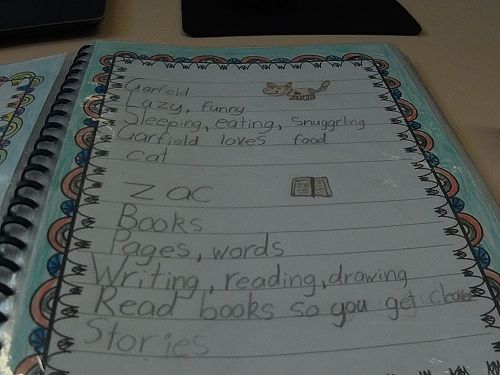 Garfield
Lazy, funny
Sleeping, eating, Snuggrling
Garfield loves food
cat
Zac
Books
Pages, words
Writing, reading, drawing
Read books so you get
Stories